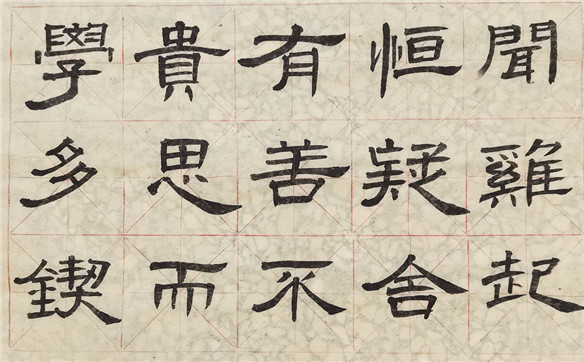 學貴有恒聞
多思善疑雞
鍥而不舍起